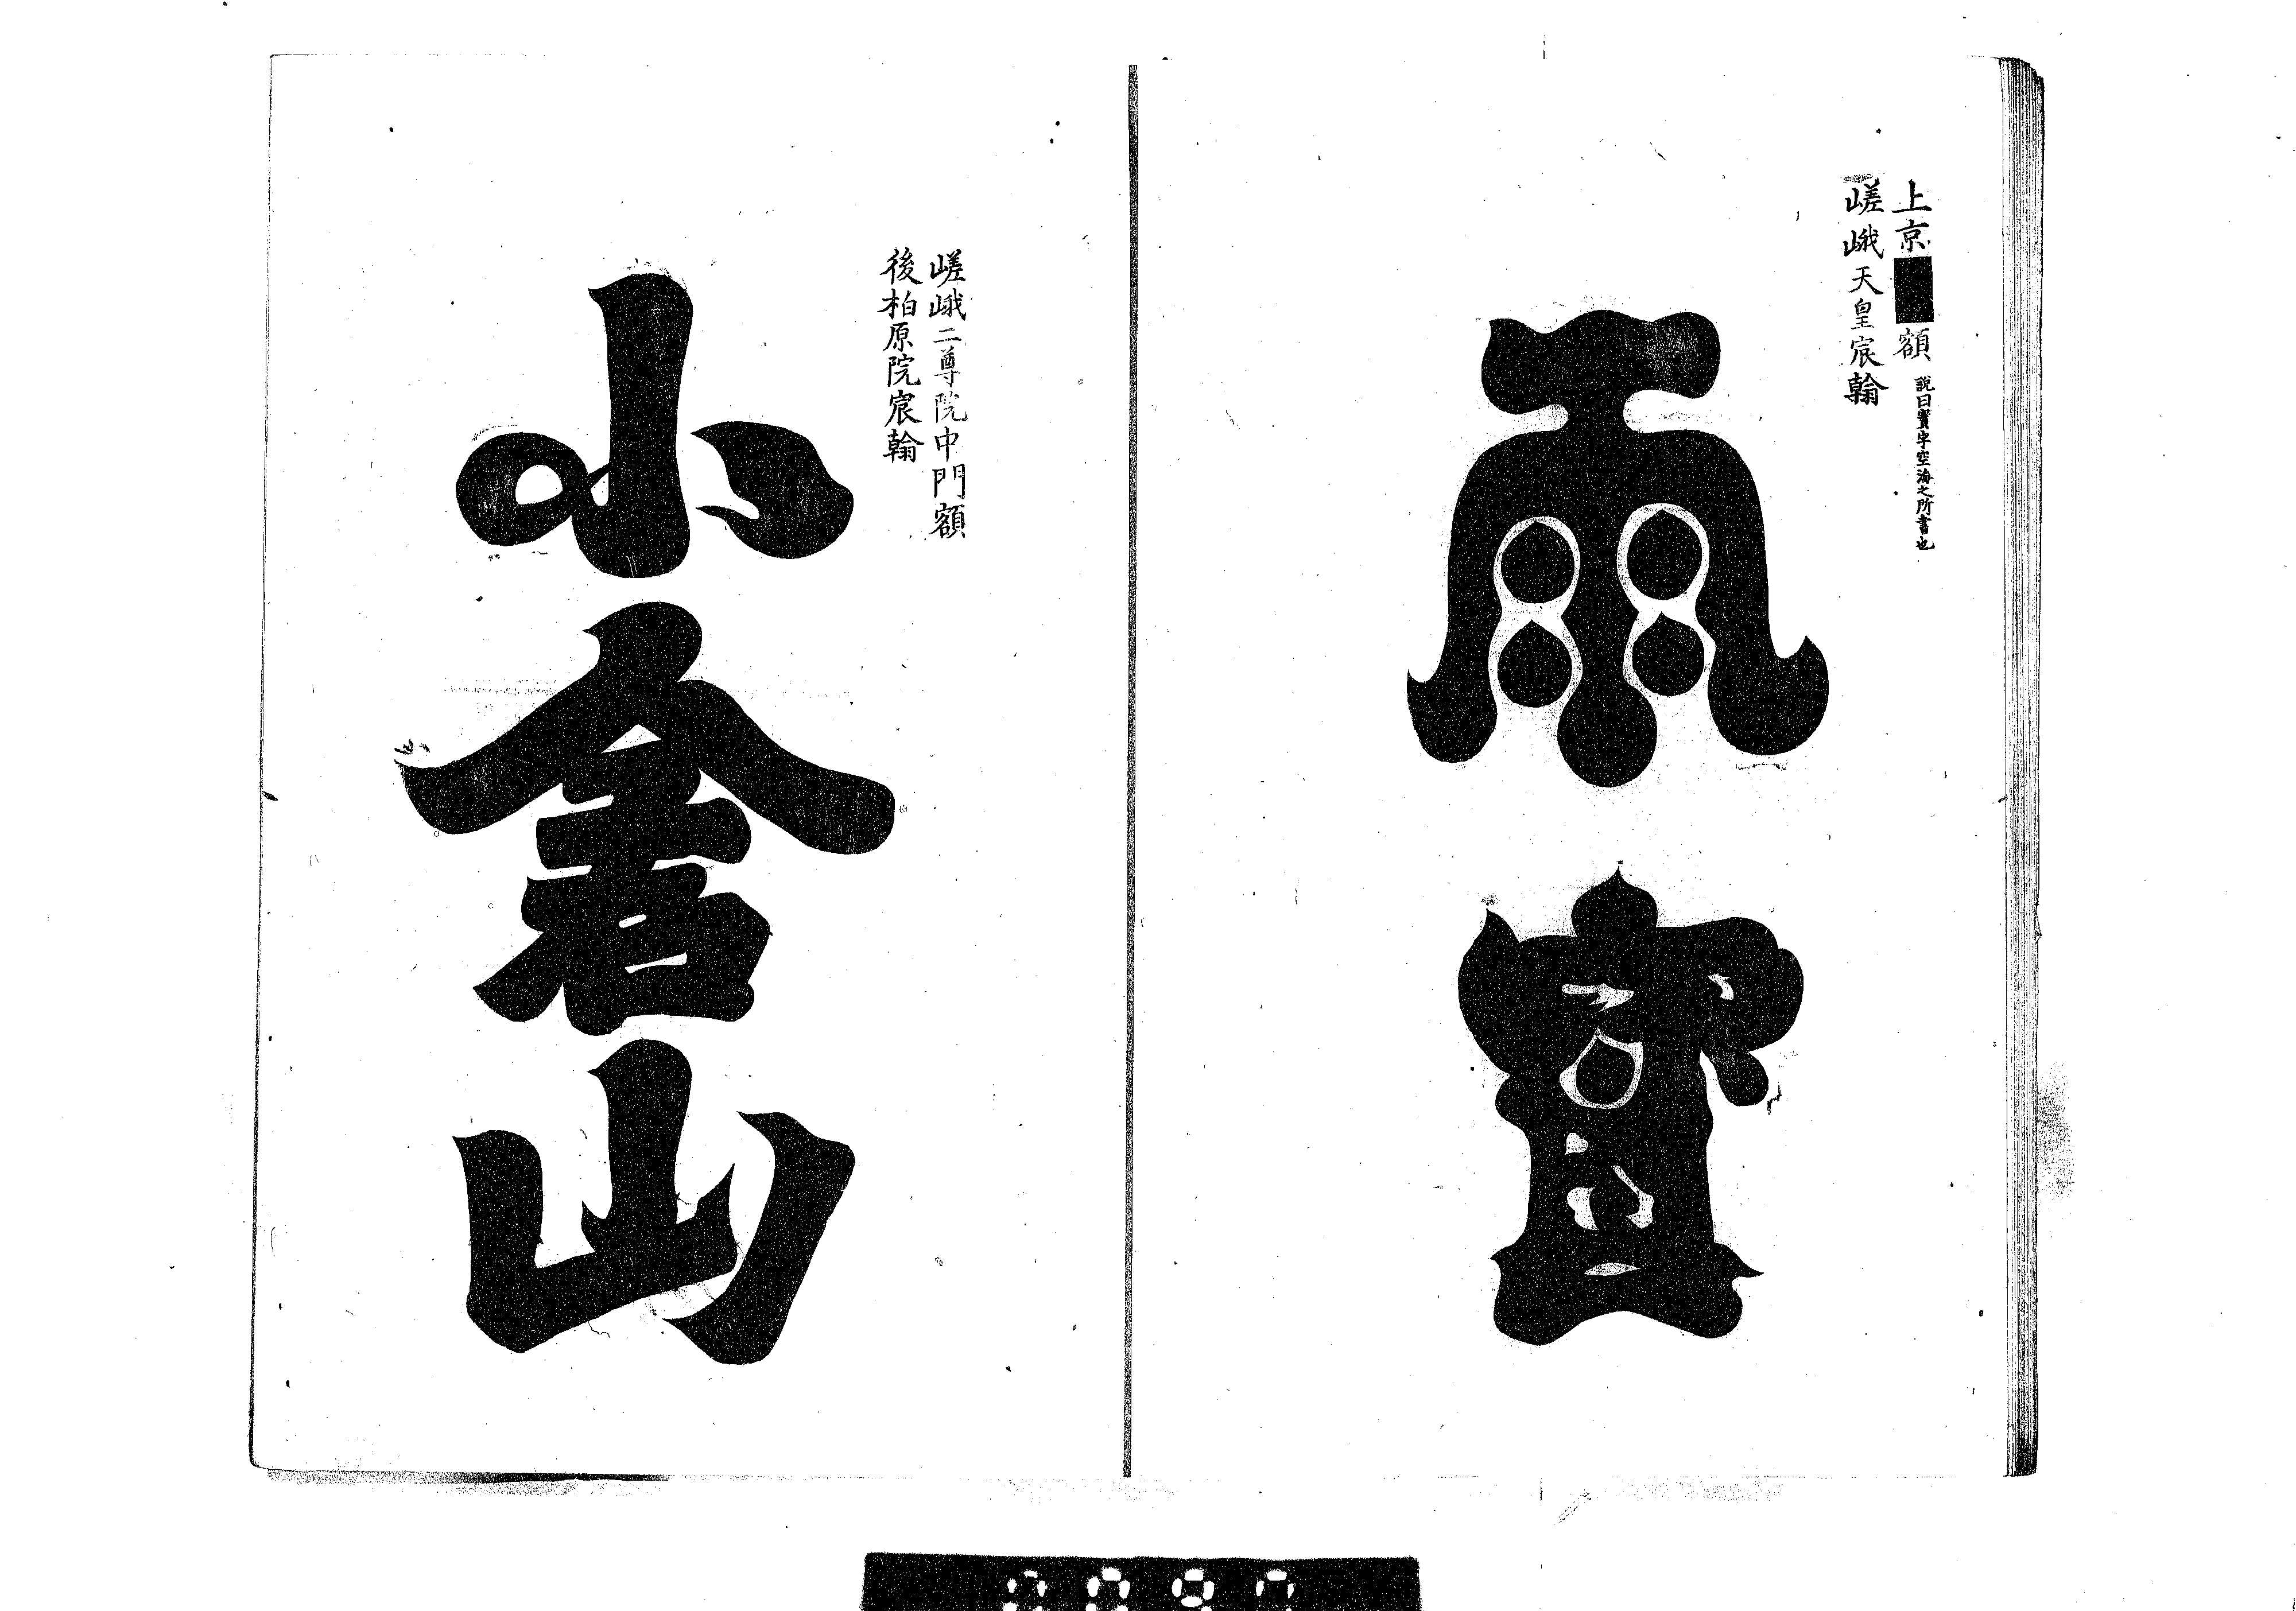 上京 額 説曰寶字空海之所書也
嵯峨天皇宸翰
雨寶
嵯峨二尊院中門額
後柏原院宸翰
小倉山